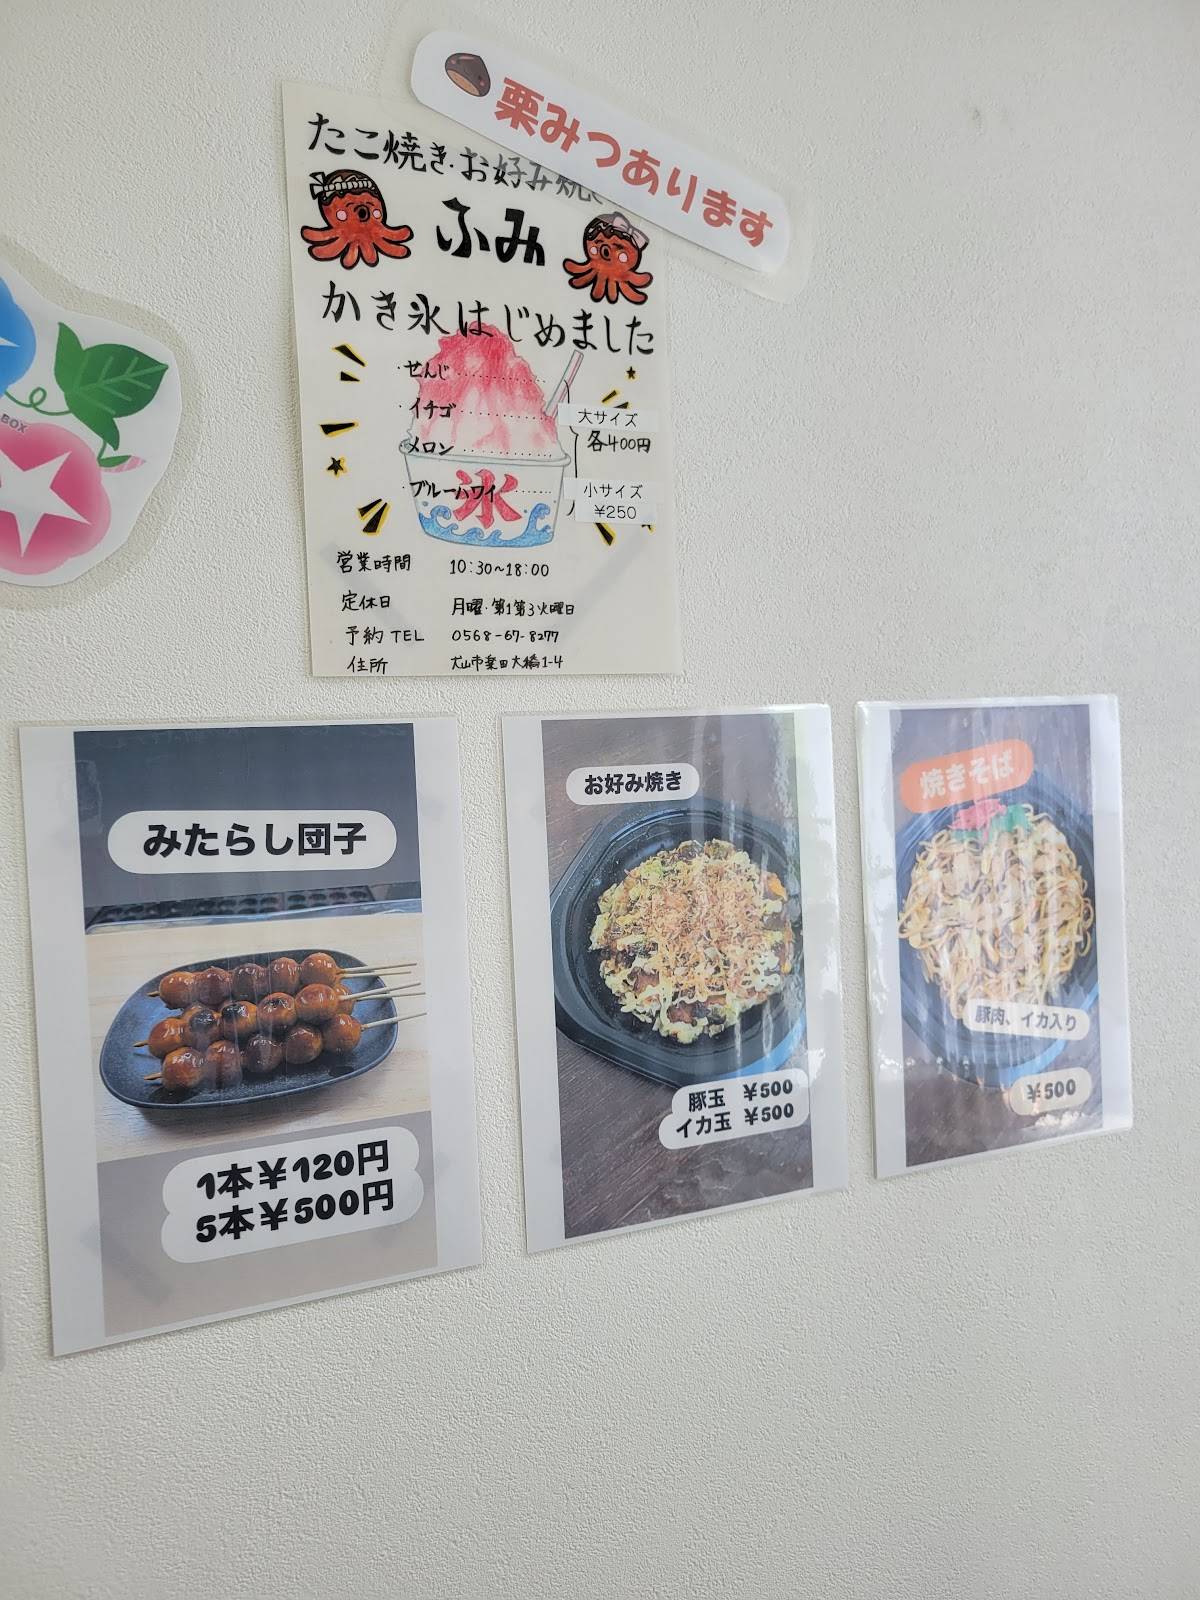 栗みつあります
たこ焼き・お好み焼き
ふみ
かき氷はじめました
・せんじ
・イチゴ
・メロン
・ブルーハワイ
大サイズ
各400円
小サイズ
¥250
氷
営業時間 10:30~18:00
定休日 月曜・第1第3火曜日
予約TEL 0568-67-8277
住所 犬山市楽田大橋1-4
BOX
みたらし団子
1本¥120円
5本¥500円
お好み焼き
豚玉 ¥500
イカ玉 ¥500
焼きそば
豚肉、イカ入り
¥500